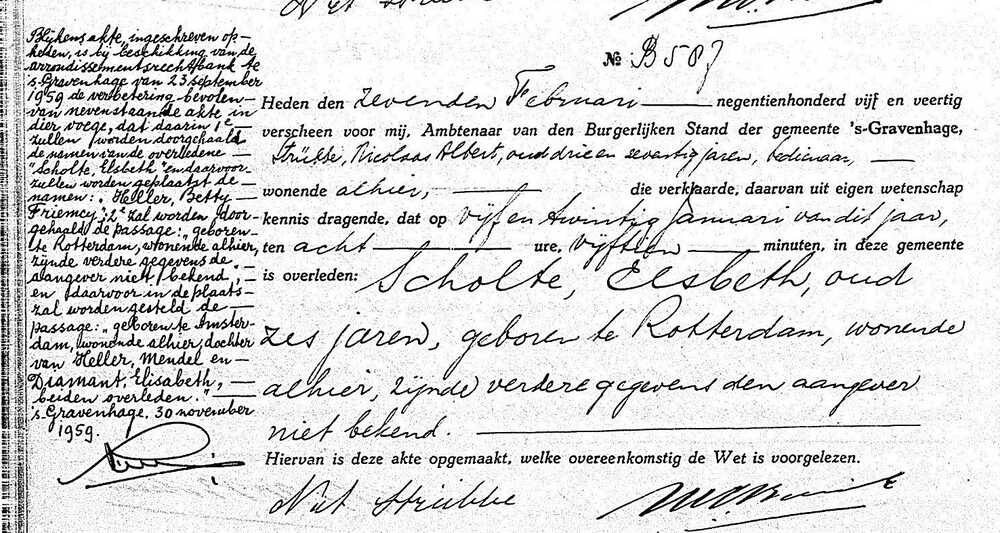 Blijkens akte, ingeschreven op-
heden, is bij beschikking van de
arrondissementsrechtbank te
's-Gravenhage van 23 september
1959 de verbetering bevolen
van nevenstaande akte in
dier voege, dat daarin 1e
zullen worden doorgehaald
de namen van de overledene
"Scholte, Elsbeth" en daarvoor
zullen worden geplaatst de
namen: "Heller, Betty
Friemcy"; 2e zal worden door-
gehaald de passage: "geboren
te Rotterdam, wonende alhier,
zijnde verdere gegevens de
aangever niet bekend",
en daarvoor in de plaats
zal worden gesteld de
passage: "geboren te Amster-
dam, wonende alhier, dochter
van Heller, Mendel en
Diamant, Elisabeth,
beiden overleden."
's-Gravenhage, 30 november
1959.
№ B587
Heden den zevenden Februari negentienhonderd vijf en veertig
verscheen voor mij, Ambtenaar van den Burgerlijken Stand der gemeente 's-Gravenhage,
Nicolaas Albert, oud drie en zeventig jaren, bedienaar,
wonende alhier, die verklaarde, daarvan uit eigen wetenschap
kennis dragende, dat op vijf en twintig Januari van dit jaar,
ten acht ure, vijftien minuten, in deze gemeente
is overleden: Scholte, Elsbeth, oud
zes jaren, geboren te Rotterdam, wonende
alhier, zijnde verdere gegevens den aangever
niet bekend.
Hiervan is deze akte opgemaakt, welke overeenkomstig de Wet is voorgelezen.